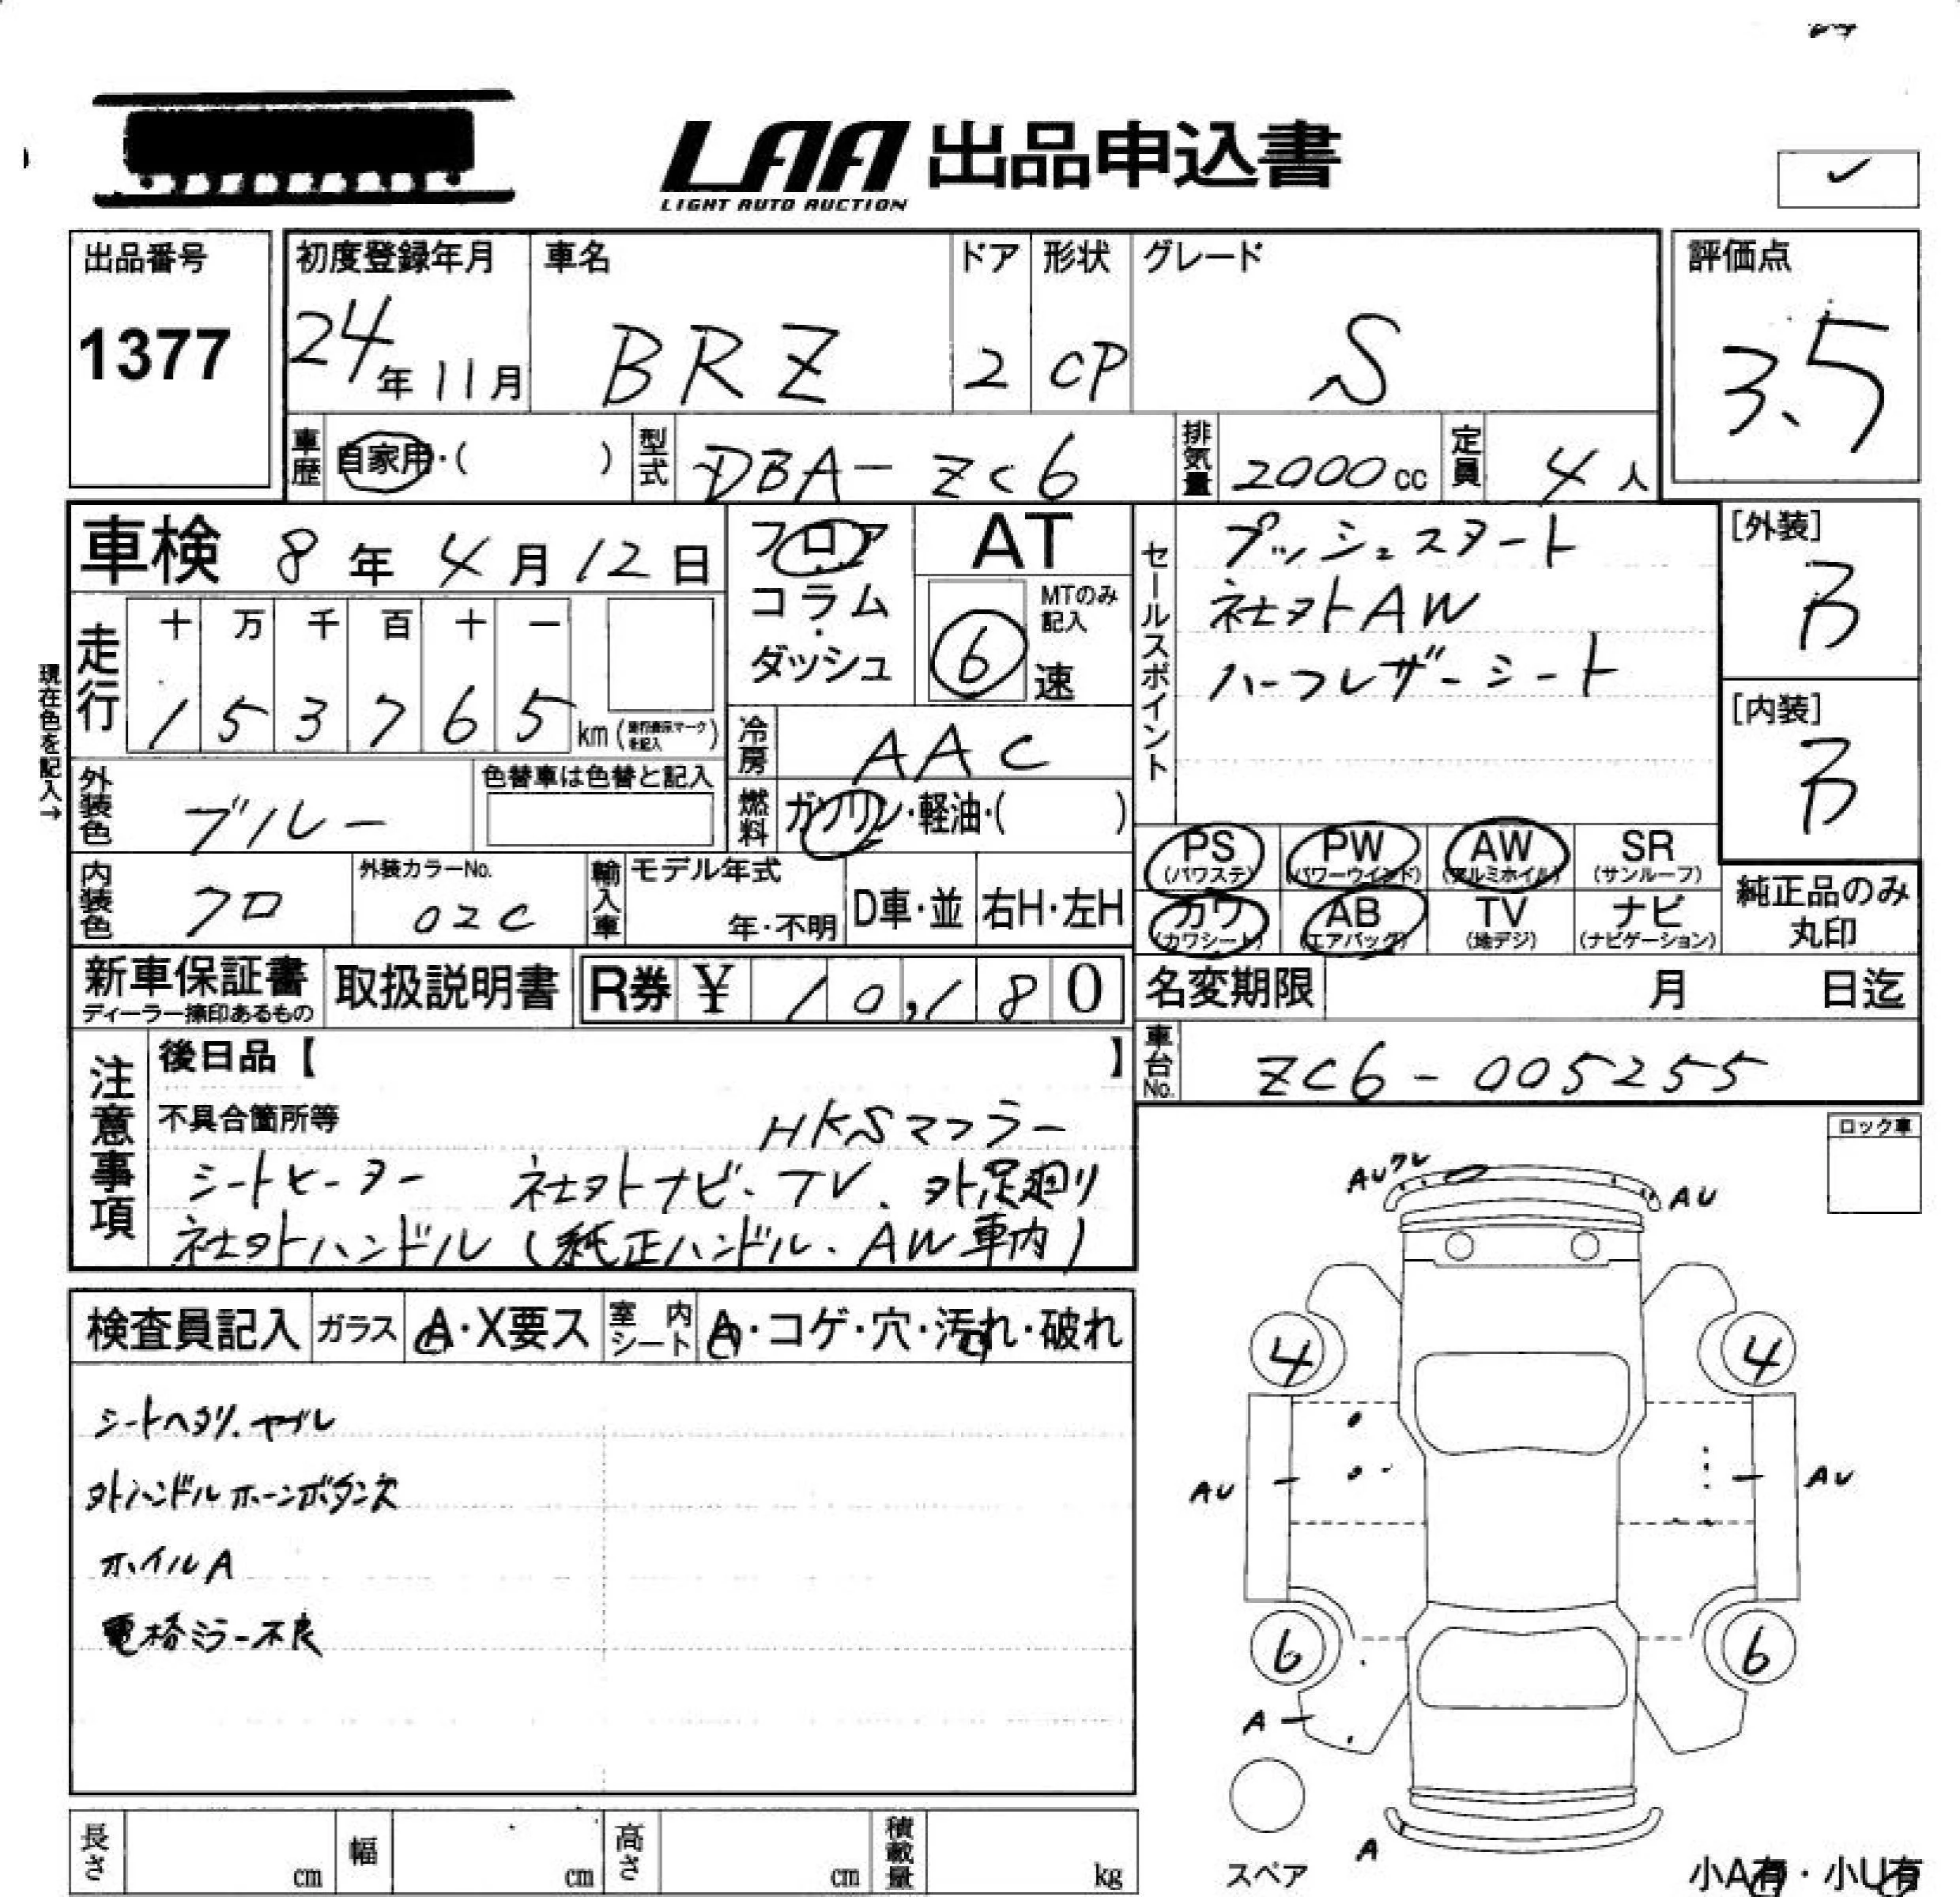 LAA 出品申込書
LIGHT AUTO AUCTION
✓
出品番号
1377
初度登録年月
24年11月
車名
BRZ
ドア
2
形状
CP
グレード
S
評価点
3.5
車歴
自家用・( )
型式
DBA-ZC6
排気量
2000cc
定員
4人
車検 8年4月12日
フロア・コラム・ダッシュ
AT
MTのみ記入
6速
セールスポイント
プッシュスタート
社外AW
ハーフレザーシート
[外装]
B
[内装]
B
現在色を記入→
走行
十 万 千 百 十 一
1 5 3 7 6 5 km
冷房
AAC
外装色
ブルー
色替車は色替と記入
燃料
ガソリン・軽油・( )
PS
(パワステ)
PW
(パワーウインド)
AW
(アルミホイル)
SR
(サンルーフ)
カワ
(カワシート)
AB
(エアバッグ)
TV
(地デジ)
ナビ
(ナビゲーション)
純正品のみ
丸印
内装色
クロ
外装カラーNo.
02C
輸入車
モデル年式
年・不明
D車・並
右H・左H
新車保証書
ディーラー捺印あるもの
取扱説明書
R券 ¥ 10,180
名変期限 月 日迄
車台No.
ZC6-005255
注意事項
後日品【 】
不具合箇所等
HKSマフラー
シートヒーター 社外ナビ・TV、外足廻り
社外ハンドル(純正ハンドル・AW車内)
ロック車
検査員記入
ガラス
A・X要ス
室内シート
A・コゲ・穴・汚れ・破れ
シートヘタリ、ヤブレ
外ハンドルホーンボタン欠
ホイルA
電格ミラー不良
AUワレ
AU
4
4
AU
AU
6
6
A
A
スペア
小A有・小U有
長さ cm
幅 cm
高さ cm
積載量 kg